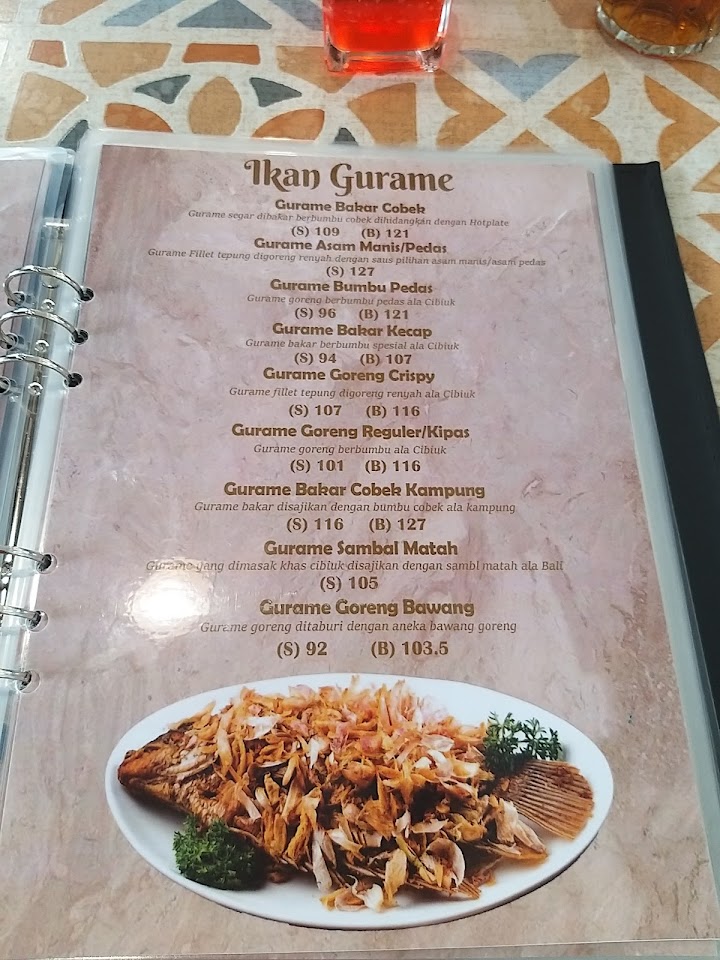 Ikan Gurame
Gurame Bakar Cobek
Gurame segar dibakar berbumbu cobek dihidangkan dengan Hotplate
(S) 109 (B) 121
Gurame Asam Manis/Pedas
Gurame Fillet tepung digoreng renyah dengan saus pilihan asam manis/asam pedas
(S) 127
Gurame Bumbu Pedas
Gurame goreng berbumbu pedas ala Cibiuk
(S) 96 (B) 121
Gurame Bakar Kecap
Gurame bakar berbumbu spesial ala Cibiuk
(S) 94 (B) 107
Gurame Goreng Crispy
Gurame fillet tepung digoreng renyah ala Cibiuk
(S) 107 (B) 116
Gurame Goreng Reguler/Kipas
Gurame goreng berbumbu ala Cibiuk
(S) 101 (B) 116
Gurame Bakar Cobek Kampung
Gurame bakar disajikan dengan bumbu cobek ala kampung
(S) 116 (B) 127
Gurame Sambal Matah
Gurame yang dimasak khas cibiuk disajikan dengan sambl matah ala Bali
(S) 105
Gurame Goreng Bawang
Gurame goreng ditaburi dengan aneka bawang goreng
(S) 92 (B) 103.5